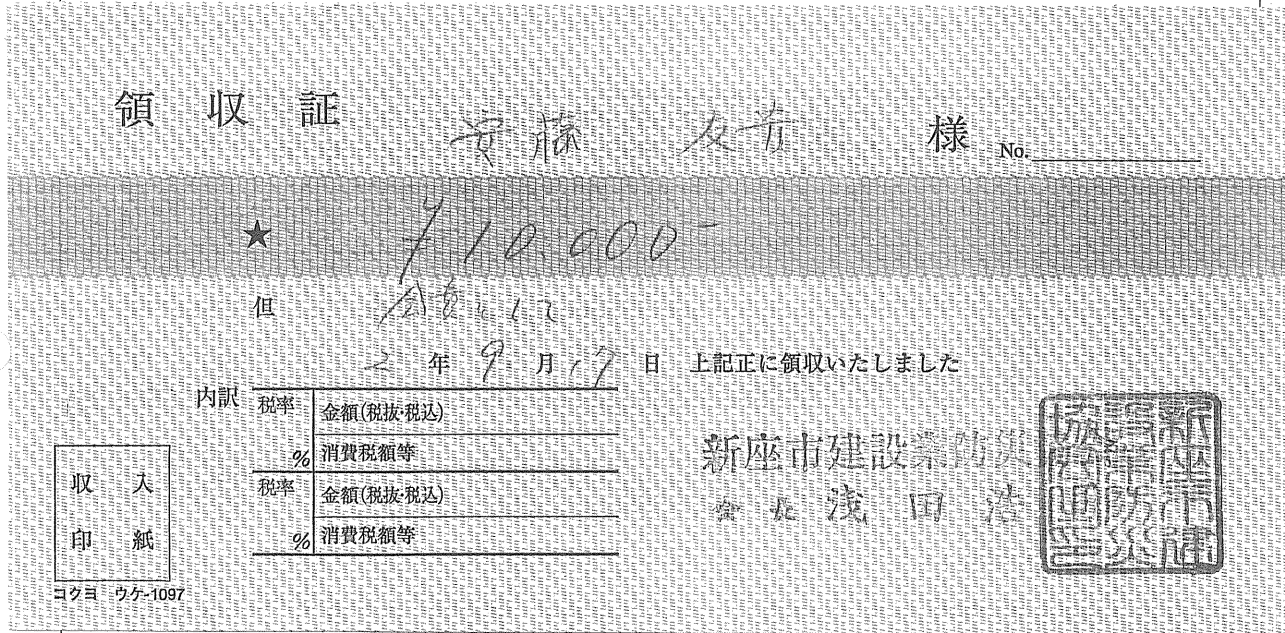 領収証 安藤 友有 様 No.
★ ¥10,000-
但 会費として
2年9月17日 上記正に領収いたしました
内訳 税率 % 金額(税抜・税込)
消費税額等
税率 % 金額(税抜・税込)
消費税額等
収入
印紙
コクヨ ウケ-1097
新座市建設業防災
会長 浅田 浩
新座市建
設業防災
協会